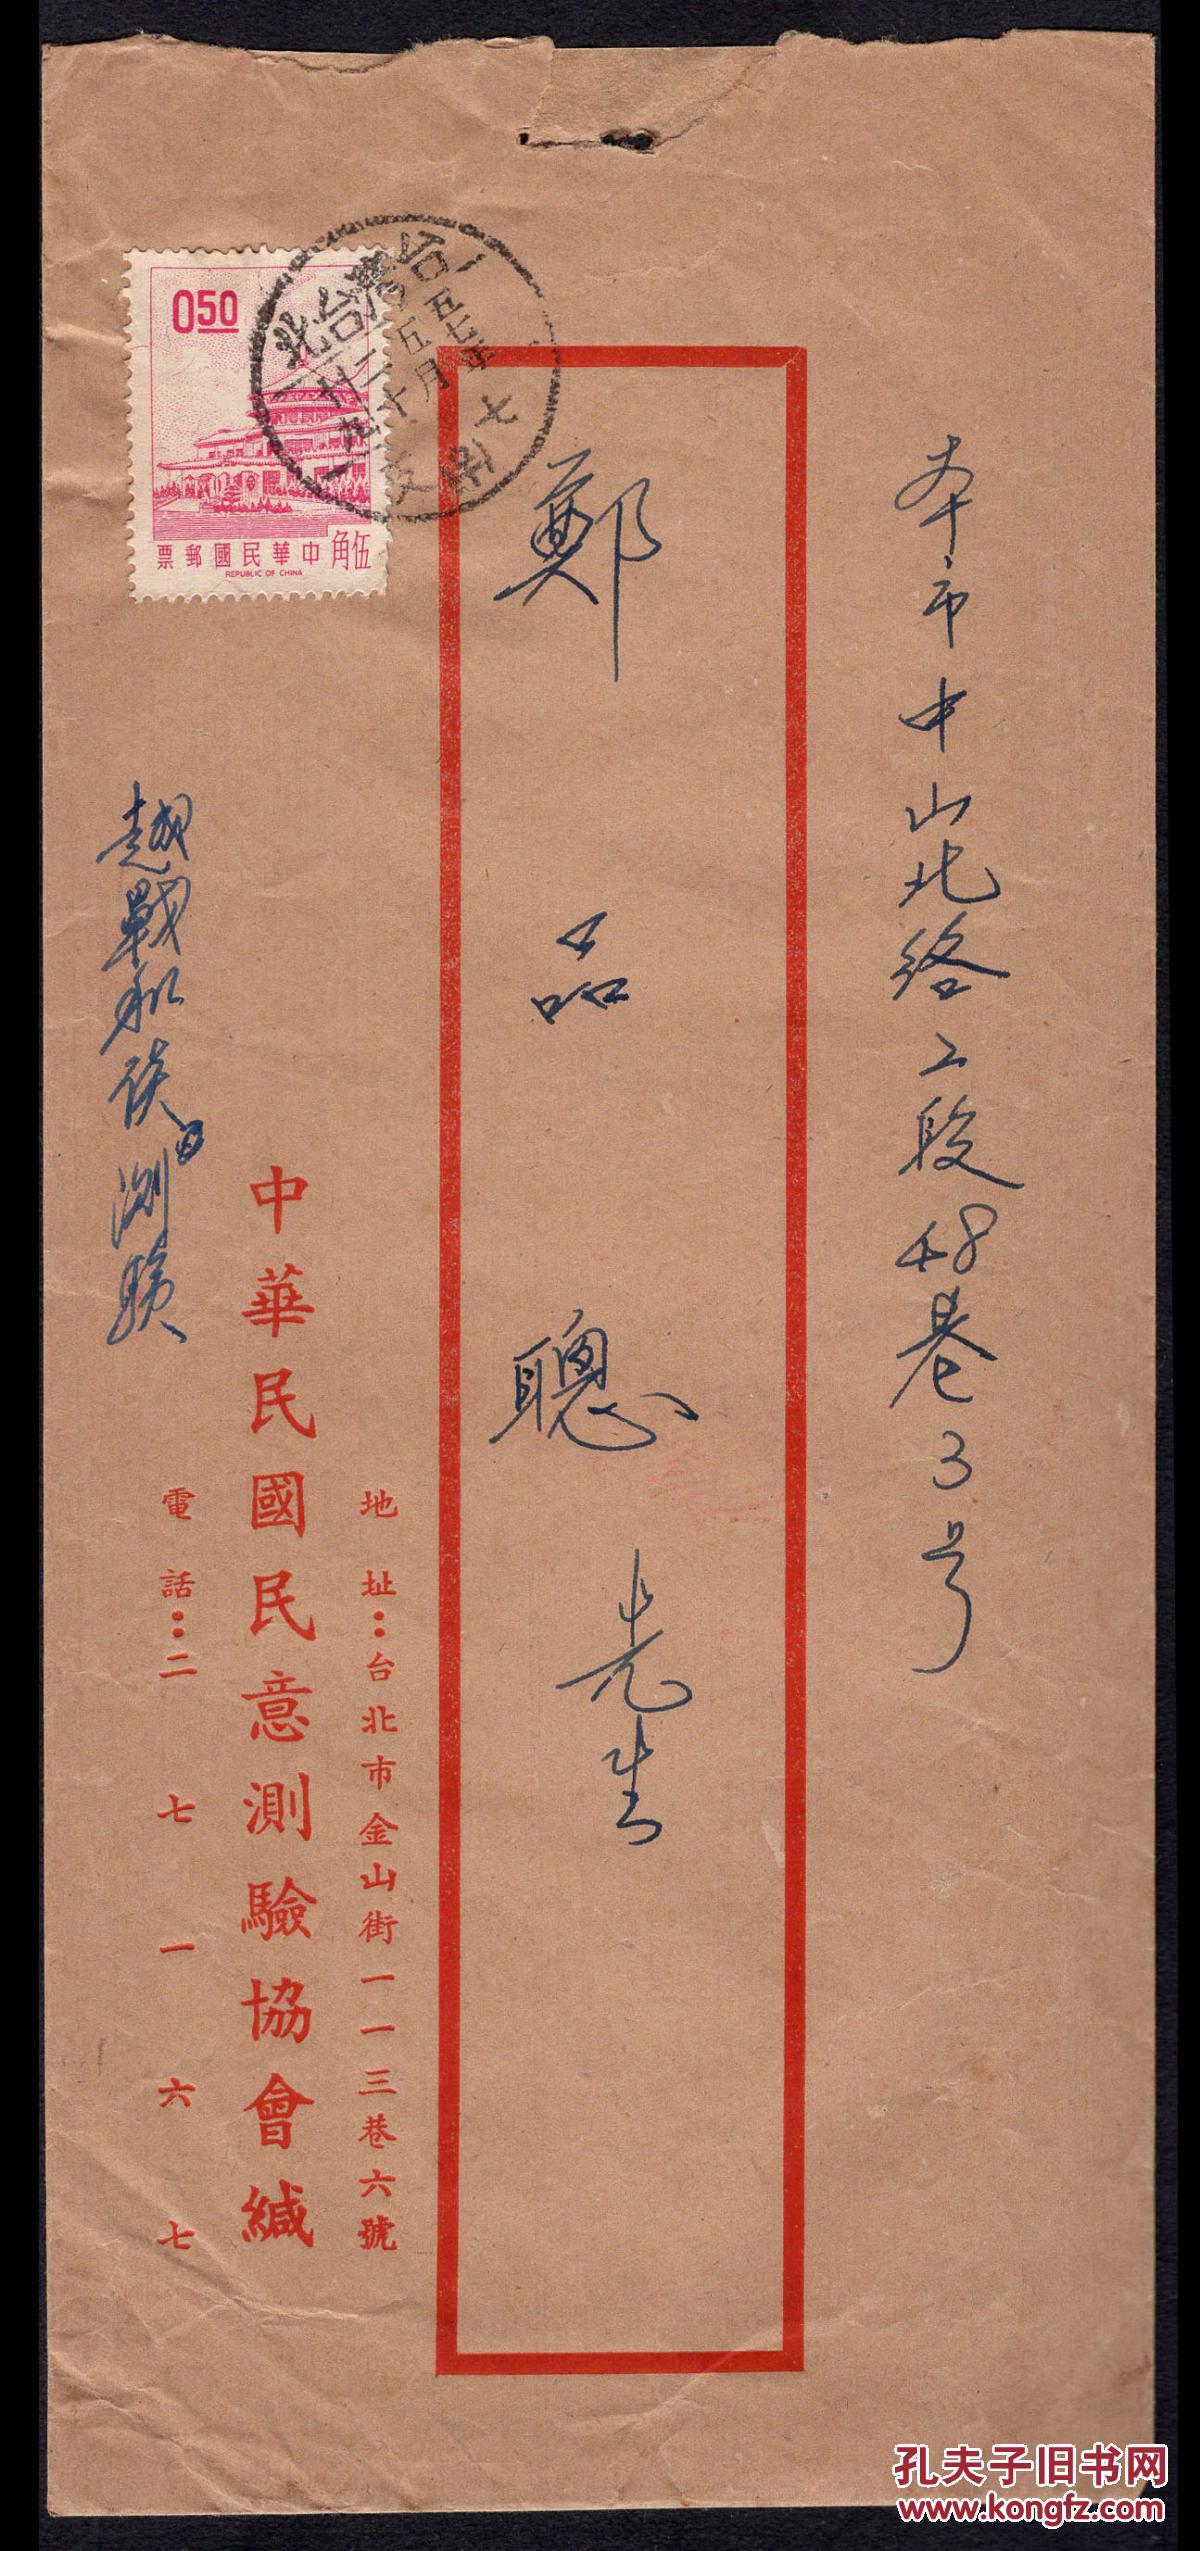 本市中山北路二段48巷3号
鄭品聰先生
地址：台北市金山街一一三巷六號
中華民國民意測驗協會緘
電話：二七一六七
越戰和談測驗
0.50
票郵國民華中
伍角
REPUBLIC OF CHINA
台灣
台北
五七年
五月
孔夫子旧书网
www.kongfz.com